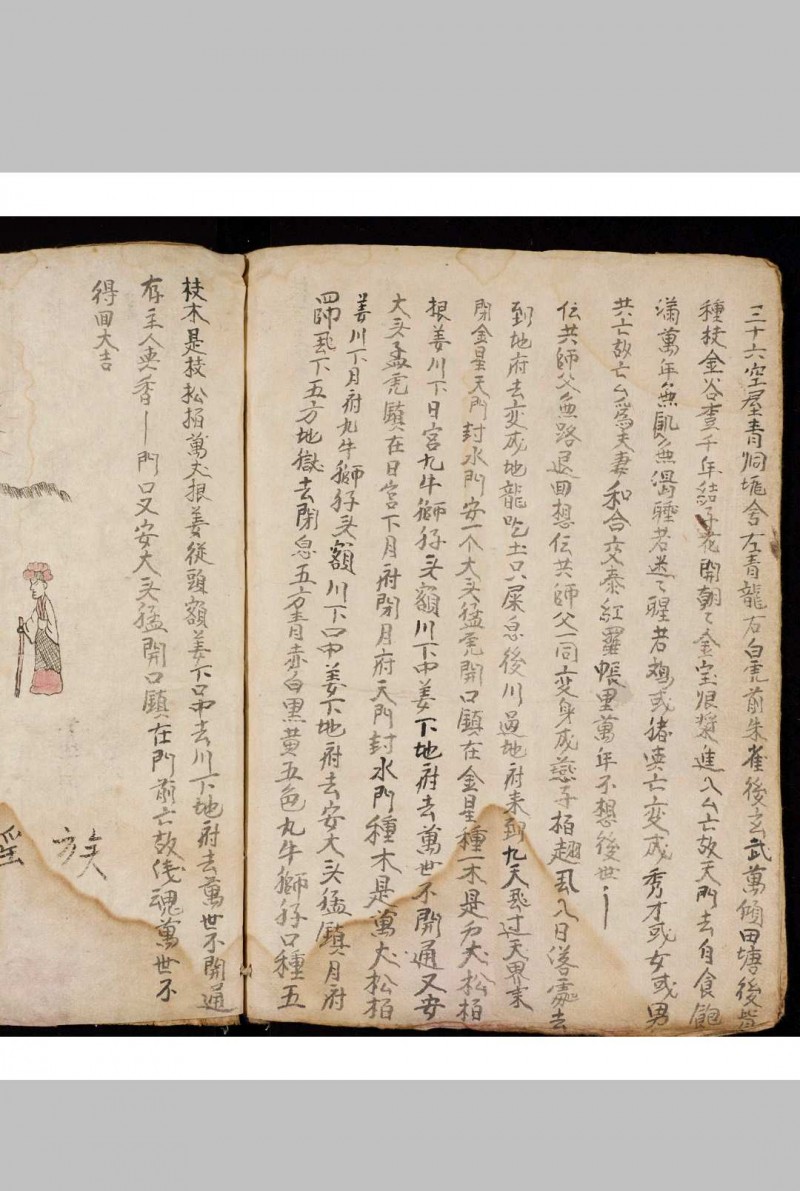 三十六空屋青洞塊舍左青龍右白虎前朱雀後玄武萬傾田塘後皆
種枝金谷壹千年結子花開朝々金宝恨漿進入厶亡故天門去自食飽
滿萬年無飢無渴睡若迷々醒若 或猪 亡变成秀才或女或男
共亡故亡厶爲夫妻和合交泰紅羅帳里萬年不想後世
伝共師父無路退回想伝共師父一同变身成燕子拍翅飛入日落處去
到地府去变成地龍吃土只屎息後川過地府来到九天飛过天界来
閉金星天門封水門安一个大头猛虎開口鎮在金星種一木是万丈松栢
根姜川下日宮九牛獅子头額川下中姜下地府去萬世不開通又安
大头孟虎鎮在日宮下月府閉月府天門封水門種木是萬丈松栢
姜川下月府九牛獅狩头額川下口中姜下地府去安大头猛鎮月府
師飛下五方地獄去閉息五方青赤白黒黄五色九牛獅狩口種五
枝木是枝松栢萬丈根姜從頭額姜下口中去川下地府去萬世不開通
存主人 香 門口又安大头猛開口鎮在門前亡故伐魂萬世不
得回大吉
族
瑶